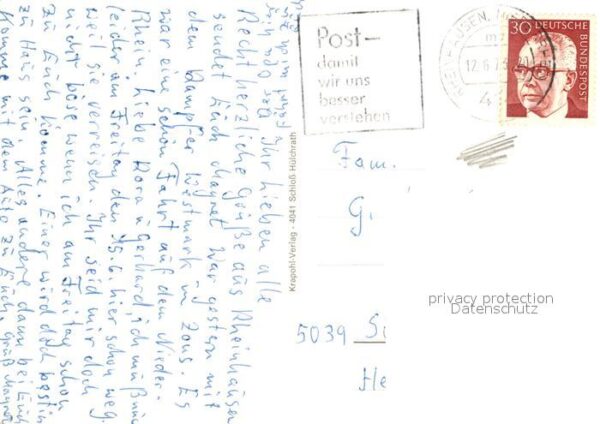 Ihr Lieben alle
Recht herzliche Grüße aus Rheinhausen
sendet Euch Magret. War gestern mit
dem Dampfer Westmark in Zons. Es
war eine schöne Fahrt auf dem Nieder-
Rhein. Liebe Rora & Gerhard, ich muß nun
leider am Freitag den 15.6. hier schon weg.
weil sie verreisen. Ihr seid mir doch
nicht böse wenn ich am Freitag schon
zu Euch komme. Einer wird doch bestim
zu Haus sein. Alles andere dann bei Euch
Komme mit dem Auto zu Euch. Gruß Magret
Krapohl-Verlag - 4041 Schloß Hülchrath
Post-
damit
wir uns
besser
verstehen
RHEINHAUSEN
12.6.73
4
30 DEUTSCHE
BUNDESPOST
Fam.
G.
5039
He
privacy protection
Datenschutz